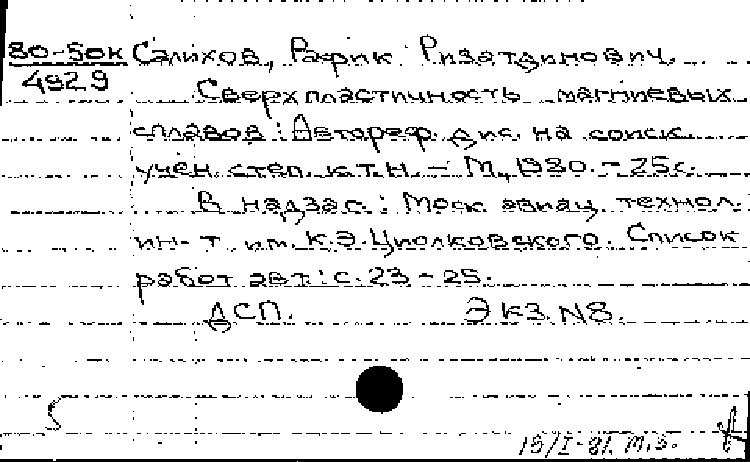 80-50к Салихов, Рафик Ризатдинович.
4929
Сверхпластичность магниевых
сплавов : Автореф. дис. на соиск.
учен. степ. к.т.н. - М., 1980. - 25с.
В надзаг.: Моск. авиац. технол.
ин-т им. К.Э.Циолковского. Список
работ авт.: с. 23 - 25.
ДСП. Экз. N8.
5